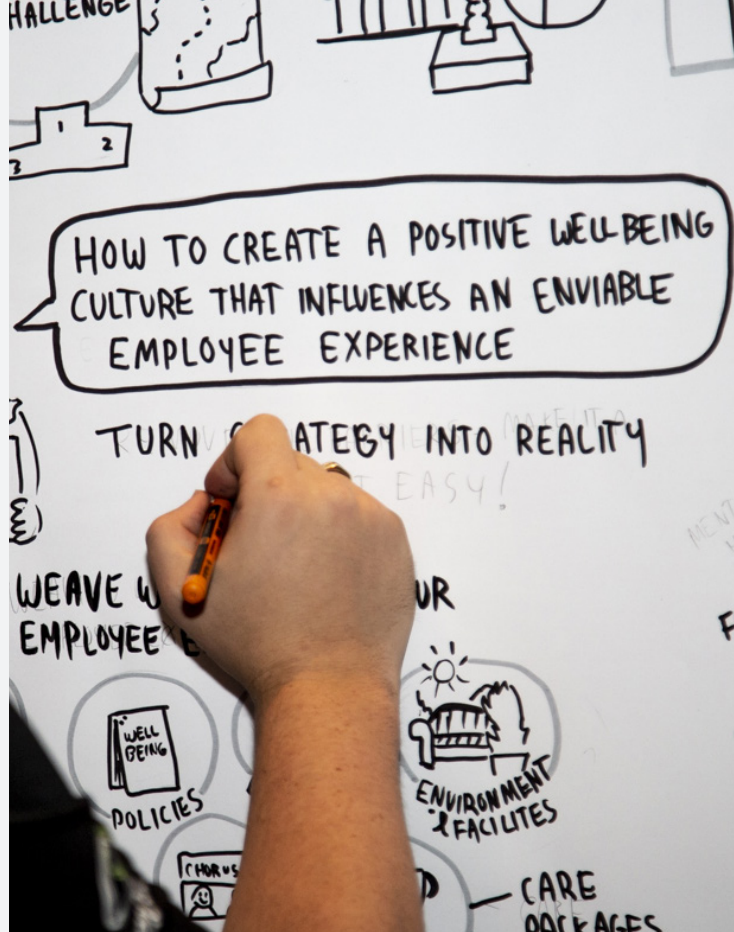 HALLENGE
1
2
3
HOW TO CREATE A POSITIVE WELLBEING
CULTURE THAT INFLUENCES AN ENVIABLE
EMPLOYEE EXPERIENCE
TURN ATEGY INTO REALITY
EASY!
WEAVE W UR
EMPLOYEE E
WELL
BEING
POLICIES
ENVIRONMENT
& FACILITES
CHORUS
CARE
PACKAGES